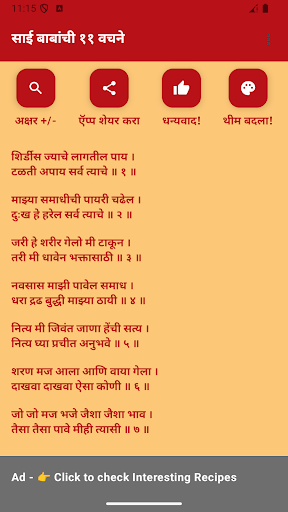 11:15
साई बाबांची ११ वचने
अक्षर +/-
ऍप्प शेयर करा
धन्यवाद!
थीम बदला!
शिर्डीस ज्याचे लागतील पाय ।
टळती अपाय सर्व त्याचे ॥ १ ॥
माझ्या समाधीची पायरी चढेल ।
दुःख हे हरेल सर्व त्याचे ॥ २ ॥
जरी हे शरीर गेलो मी टाकून ।
तरी मी धावेन भक्तासाठी ॥ ३ ॥
नवसास माझी पावेल समाध ।
धरा द्रढ बुद्धी माझ्या ठायी ॥ ४ ॥
नित्य मी जिवंत जाणा हेंची सत्य ।
नित्य घ्या प्रचीत अनुभवे ॥ ५ ॥
शरण मज आला आणि वाया गेला ।
दाखवा दाखवा ऐसा कोणी ॥ ६ ॥
जो जो मज भजे जैशा जैशा भाव ।
तैसा तैसा पावे मीही त्यासी ॥ ७ ॥
Ad - 👉 Click to check Interesting Recipes